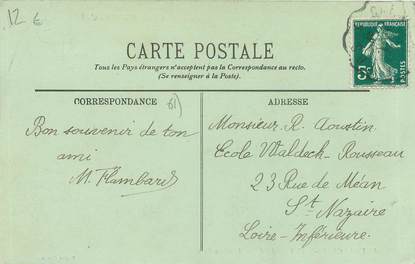 12 €
CARTE POSTALE
Tous les Pays étrangers n'acceptent pas la Correspondance au recto.
(Se renseigner à la Poste).
RÉPUBLIQUE FRANÇAISE
5c
POSTES
CORRESPONDANCE
61)
ADRESSE
Bon souvenir de ton
ami
M. Flambard
Monsieur R. Aoustin
Ecole Waldeck-Rousseau
23 Rue de Méan
St Nazaire
Loire-Inférieure